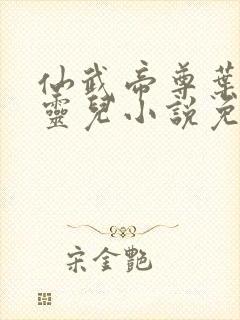 仙武帝尊葉
靈兒小說免
宋金艷